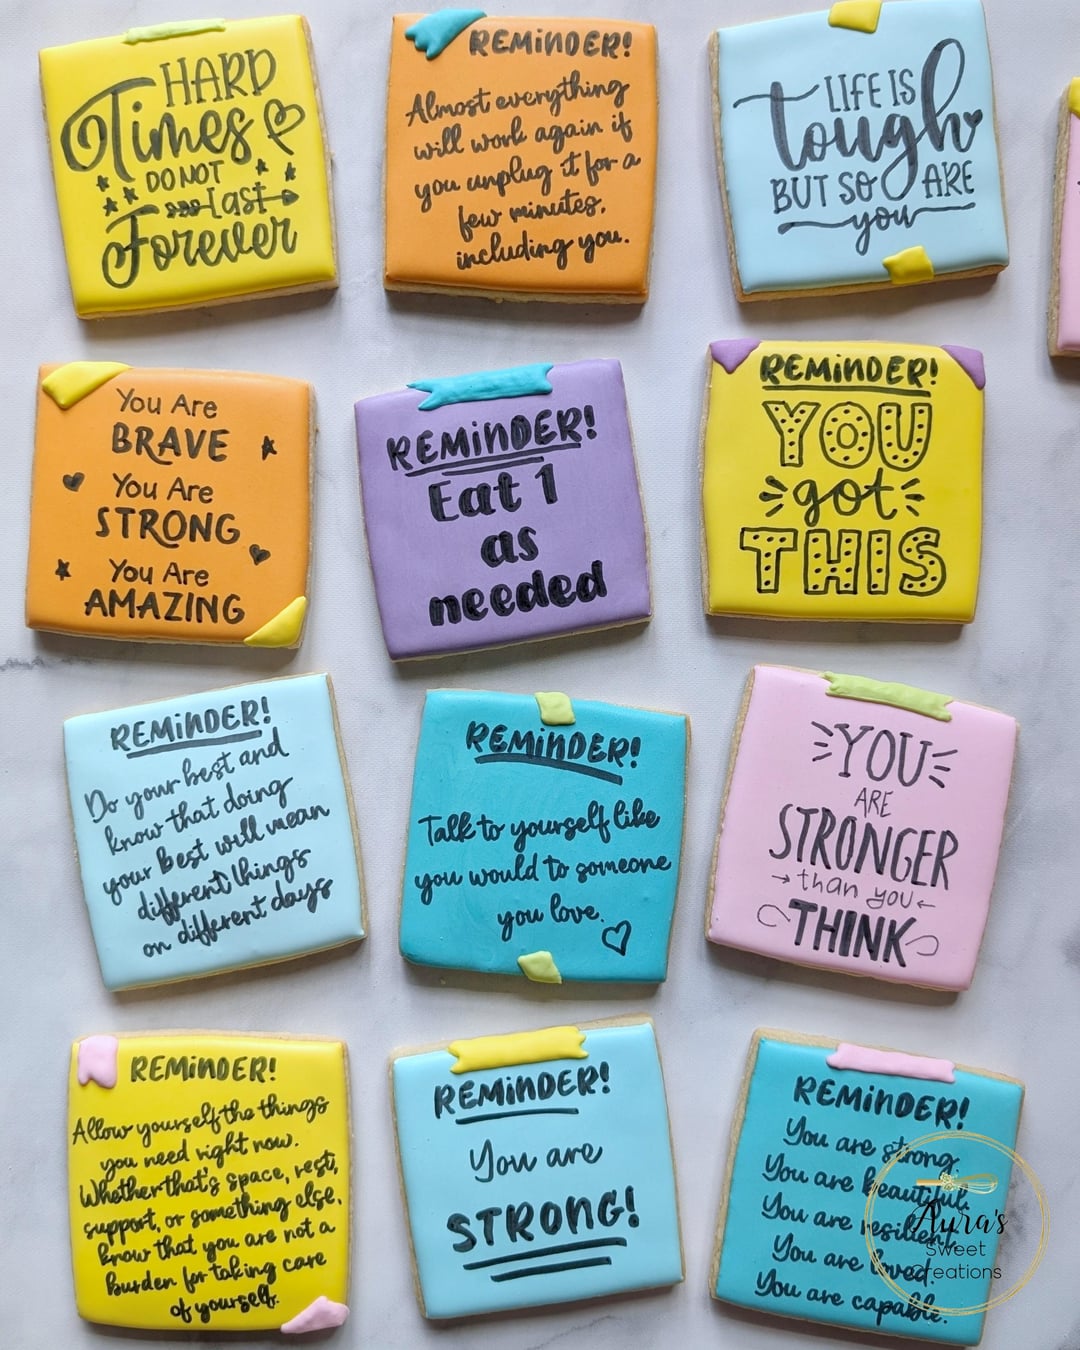 HARD
Times
DO NOT
Last
Forever
REMINDER!
Almost everything
will work again if
you unplug it for a
few minutes,
including you.
LIFE IS
tough
BUT SO ARE
you
You Are
BRAVE
You Are
STRONG
You Are
AMAZING
REMINDER!
Eat 1
as
needed
REMINDER!
YOU
got
THIS
REMINDER!
Do your best and
know that doing
your best will mean
different things
on different days
REMINDER!
Talk to yourself like
you would to someone
you love.
YOU
ARE
STRONGER
than you
THINK
REMINDER!
Allow yourself the things
you need right now.
Whether that's space, rest,
support, or something else,
know that you are not a
burden for taking care
of yourself.
REMINDER!
You are
STRONG!
REMINDER!
You are strong.
You are beautiful.
You are resilient.
You are loved.
You are capable.
Aura's
Sweet
Creations